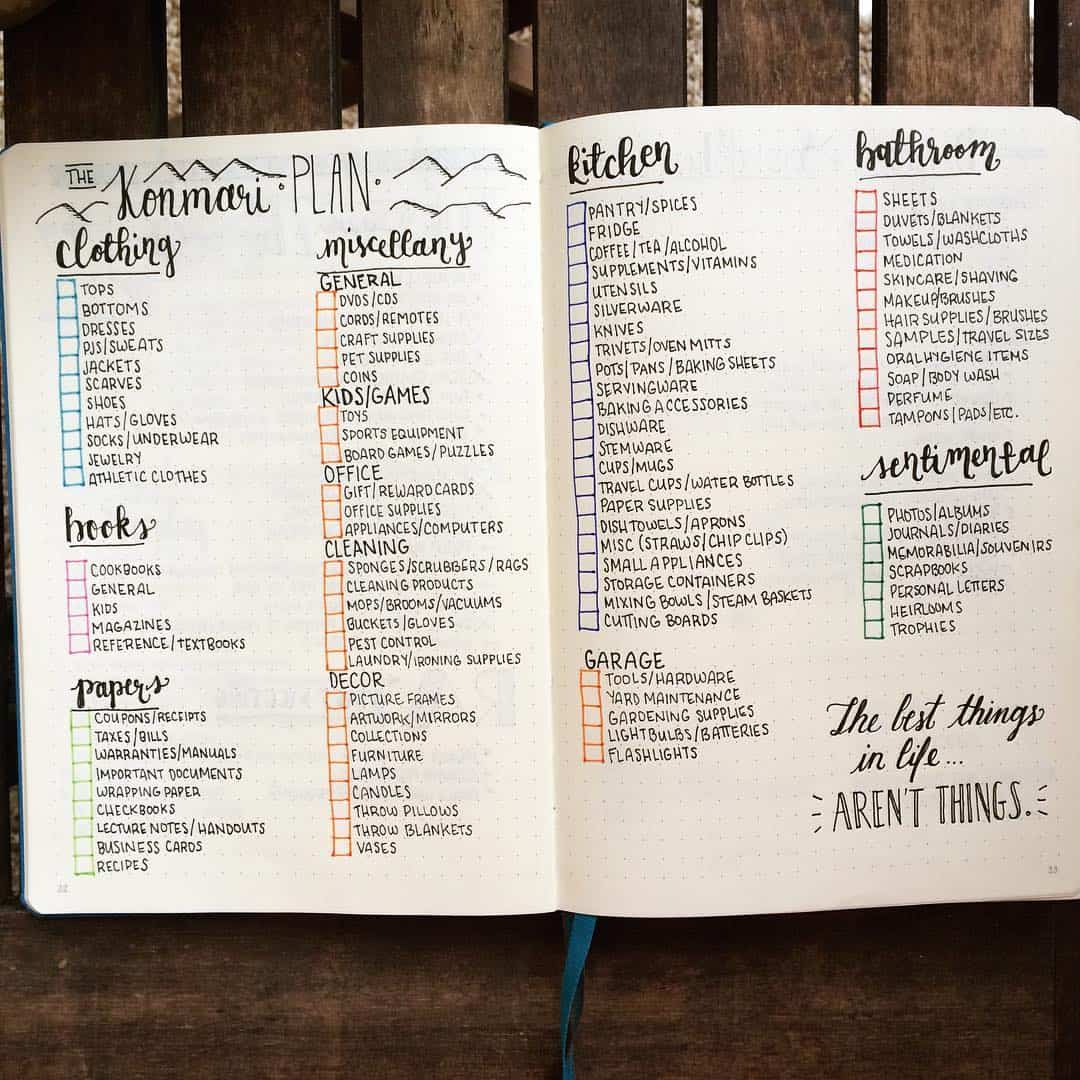 THE Konmari PLAN.
clothing
TOPS
BOTTOMS
DRESSES
PJS/SWEATS
JACKETS
SCARVES
SHOES
HATS/GLOVES
SOCKS/UNDERWEAR
JEWELRY
ATHLETIC CLOTHES
books
COOKBOOKS
GENERAL
KIDS
MAGAZINES
REFERENCE/TEXTBOOKS
papers
COUPONS/RECEIPTS
TAXES/BILLS
WARRANTIES/MANUALS
IMPORTANT DOCUMENTS
WRAPPING PAPER
CHECKBOOKS
LECTURE NOTES/HANDOUTS
BUSINESS CARDS
RECIPES
32
miscellany
GENERAL
DVDS/CDS
CORDS/REMOTES
CRAFT SUPPLIES
PET SUPPLIES
COINS
KIDS/GAMES
TOYS
SPORTS EQUIPMENT
BOARD GAMES/PUZZLES
OFFICE
GIFT/REWARD CARDS
OFFICE SUPPLIES
APPLIANCES/COMPUTERS
CLEANING
SPONGES/SCRUBBERS/RAGS
CLEANING PRODUCTS
MOPS/BROOMS/VACUUMS
BUCKETS/GLOVES
PEST CONTROL
LAUNDRY/IRONING SUPPLIES
DECOR
PICTURE FRAMES
ARTWORK/MIRRORS
COLLECTIONS
FURNITURE
LAMPS
CANDLES
THROW PILLOWS
THROW BLANKETS
VASES
kitchen
PANTRY/SPICES
FRIDGE
COFFEE/TEA/ALCOHOL
SUPPLEMENTS/VITAMINS
UTENSILS
SILVERWARE
KNIVES
TRIVETS/OVEN MITTS
POTS/PANS/BAKING SHEETS
SERVINGWARE
BAKING ACCESSORIES
DISHWARE
STEMWARE
CUPS/MUGS
TRAVEL CUPS/WATER BOTTLES
PAPER SUPPLIES
DISH TOWELS/APRONS
MISC (STRAWS/CHIP CLIPS)
SMALL APPLIANCES
STORAGE CONTAINERS
MIXING BOWLS/STEAM BASKETS
CUTTING BOARDS
GARAGE
TOOLS/HARDWARE
YARD MAINTENANCE
GARDENING SUPPLIES
LIGHTBULBS/BATTERIES
FLASHLIGHTS
bathroom
SHEETS
DUVETS/BLANKETS
TOWELS/WASHCLOTHS
MEDICATION
SKINCARE/SHAVING
MAKEUP/BRUSHES
HAIR SUPPLIES/BRUSHES
SAMPLES/TRAVEL SIZES
ORAL HYGIENE ITEMS
SOAP/BODY WASH
PERFUME
TAMPONS/PADS/ETC.
sentimental
PHOTOS/ALBUMS
JOURNALS/DIARIES
MEMORABILIA/SOUVENIRS
SCRAPBOOKS
PERSONAL LETTERS
HEIRLOOMS
TROPHIES
The best things
in life...
AREN'T THINGS.
33